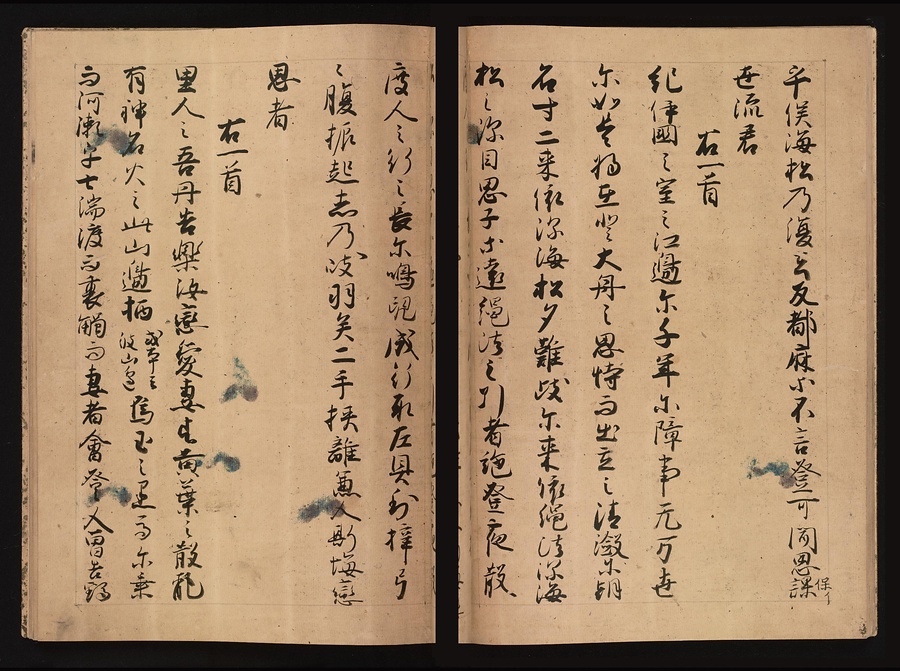 乎俣海松乃復去反都麻等不言登可聞思課保イ
世流君
右一首
紀伊國之室之江邊尓千年尓障事无万世
尓如是将在登大舟之思恃而出立之清瀲尓朝
名寸二来依深海松夕難岐尓来依縄法深海
松之深目思子等遠縄法之引者絶登夜散
度人之行之長尓鳴兒成行取左具利梓弓
々腹振起志乃岐羽矣二手挟離兼人斯悔戀
思者
右一首
里人之吾丹告樂汝戀愛妻者黄葉之散乱
有神名火之此山邊柄或本云彼山邊烏玉之黒馬尓乗
而河瀬乎七湍渡而裏觸而妻者會登人曽告鶴